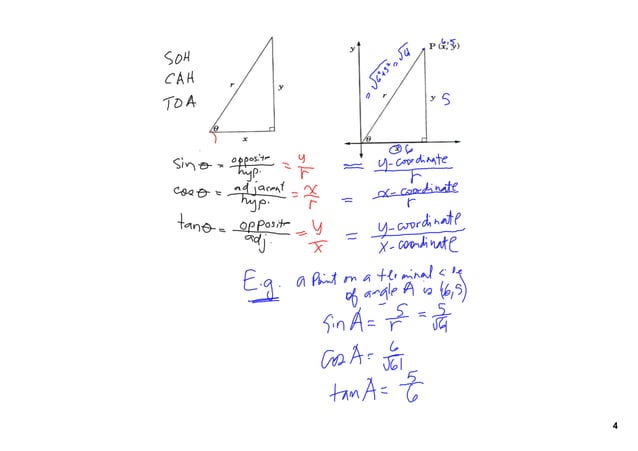 SOH
CAH
TOA
r
y
θ
x
y
P (x, y)
6, 5
= √6²+5² = √61
r
y 5
θ
x 6
sinθ = opposite/hyp. = y/r = y-coordinate/r
cosθ = adjacent/hyp. = x/r = x-coordinate/r
tanθ = opposite/adj. = y/x = y-coordinate/x-coordinate
E.g. a point on a terminal
of angle A is (6,5)
sinA = 5/r = 5/√61
cosA = 6/√61
tanA = 5/6
4